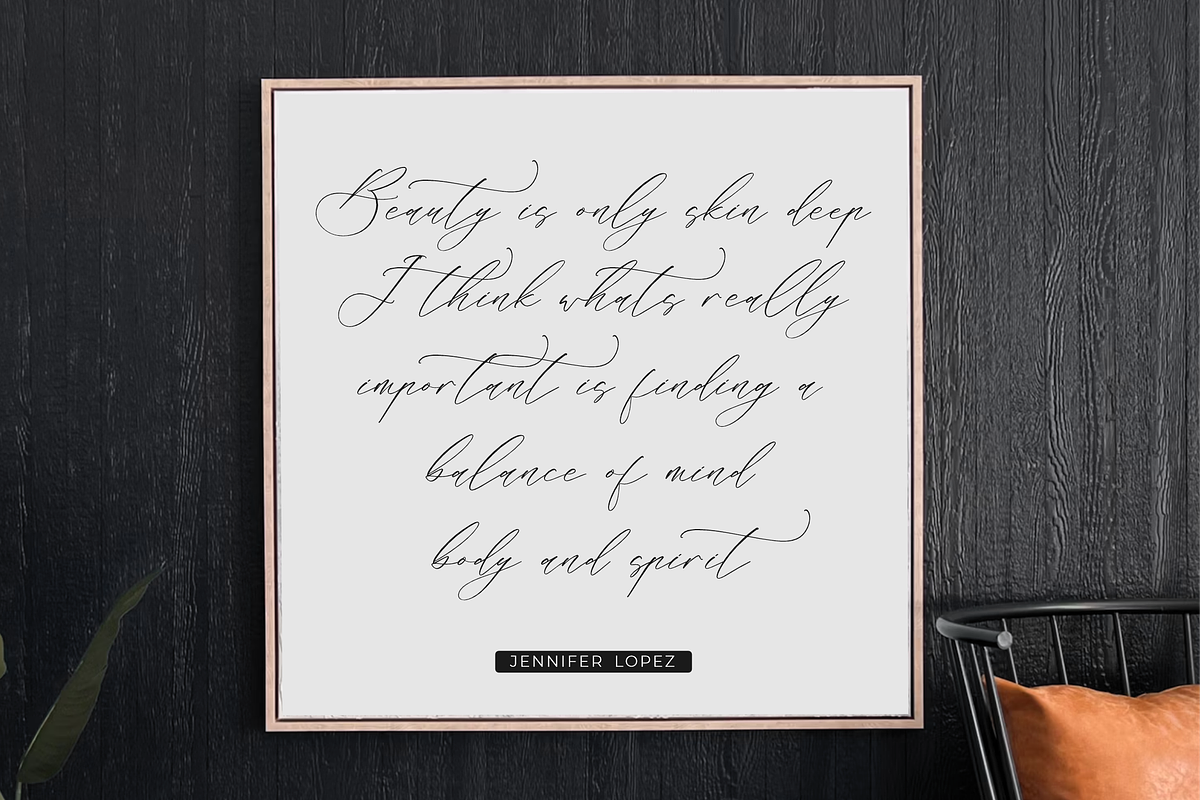 Beauty is only skin deep
I think whats really
important is finding a
balance of mind
body and spirit
JENNIFER LOPEZ